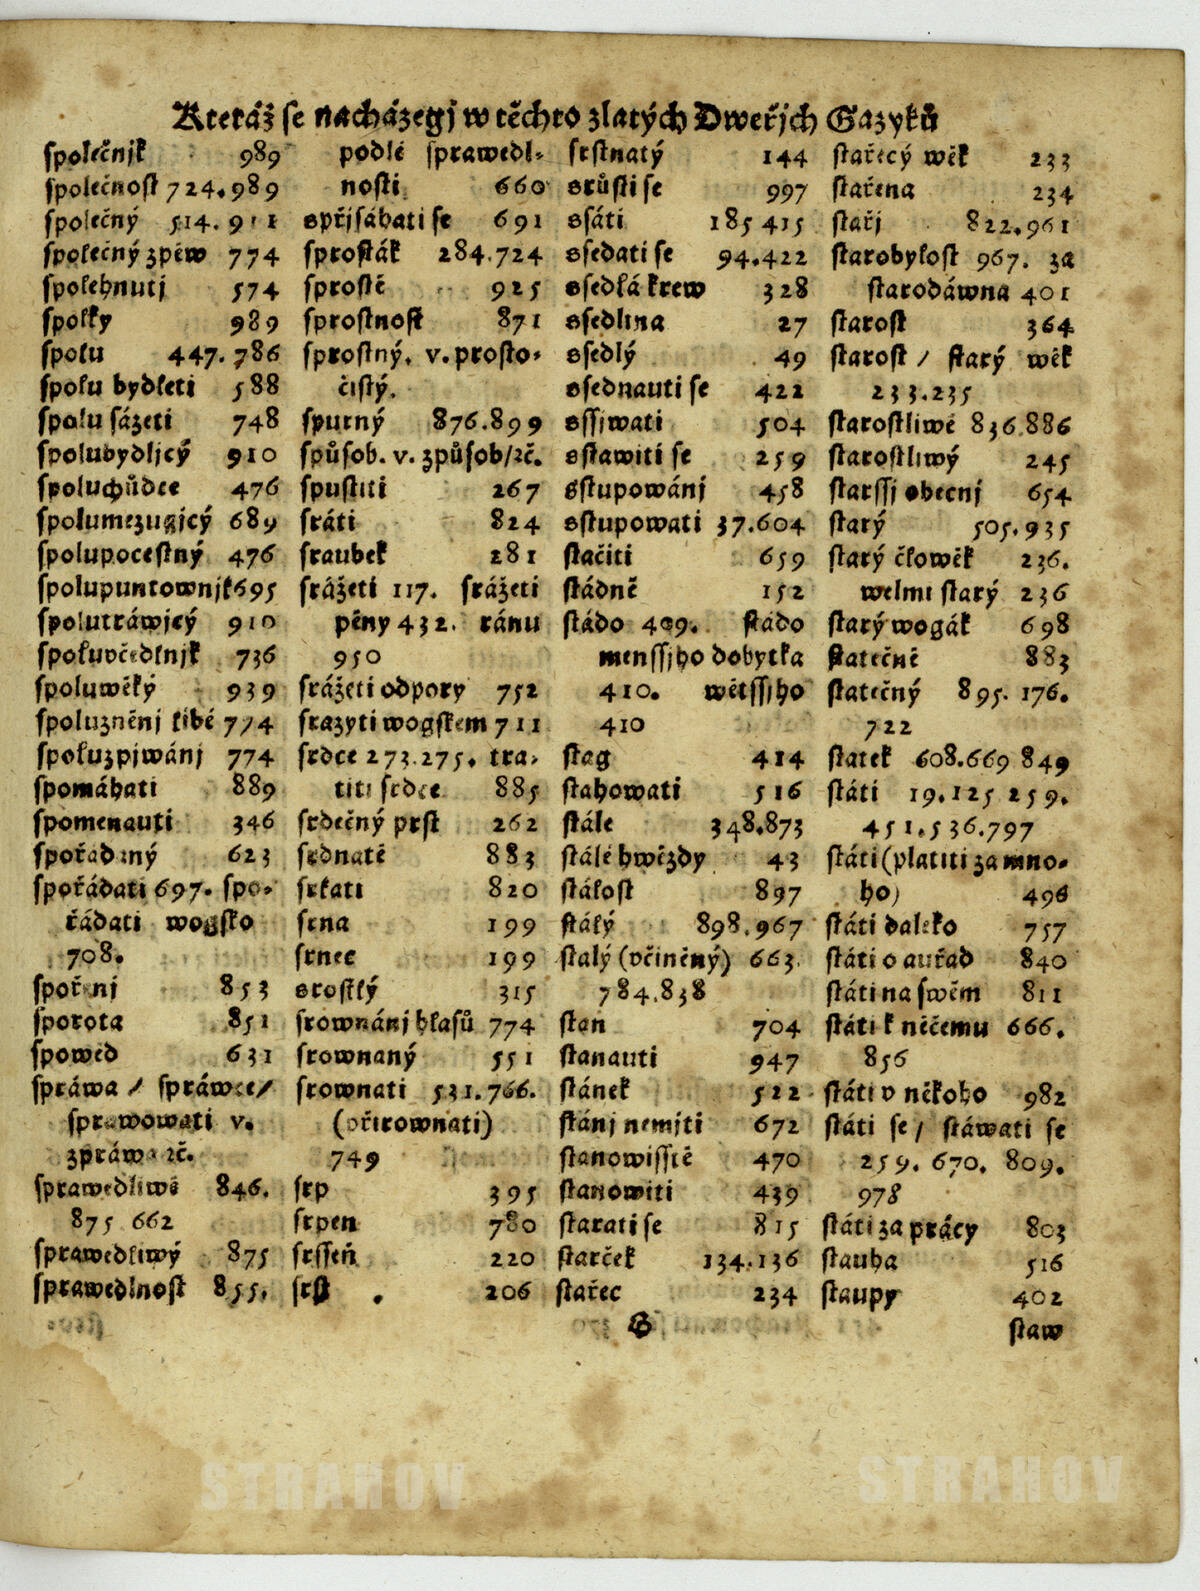 Kteráž se nacházegj w těchto zlatých Dweřjch Gazyků
společnjk 989
společnost 724.989
společný 514. 911
společný zpěw 774
spolehnutj 574
spolky 989
spolu 447. 786
spolu bydleti 588
spolu sázeti 748
spolubydljcý 910
spoluchůdce 476
spolumezugjcý 689
spolupocestný 476
spolupuntownjk 695
spolutráwjcý 910
spoluvčedlnjk 736
spoluwěký 939
spoluzněnj libé 774
spoluzpjwánj 774
spomáhati 889
spomenauti 346
spořádaný 623
spořádati 697. spo-
řádati wogsko
708.
spořenj 853
sporota 851
spowěd 631
spráwa / spráwce/
sprawowati v.
zpráwa ꝛč.
sprawedliwě 846.
875 662
sprawedliwý 875
sprawedlnost 855.
podlé sprawedl-
nosti 660
spřjsáhati se 691
sprosťák 284.724
sprostě 925
sprostnost 871
sprostný. v. prosto-
čistý.
spurný 876.899
spůsob. v. způsob/ꝛč.
spustiti 267
sráti 824
sraubek 281
srážeti 117. srážeti
pěny 432. ránu
950
srážeti odpory 752
srazyti wogskem 711
srdce 273.275. tra-
titi srdce 885
srdečný prst 262
srdnatě 883
srkati 820
srna 199
srnec 199
srostlý 315
srownánj hlasů 774
srownaný 551
srownati 531.766.
(přirownati)
749
srp 395
srpen 780
srsseň 220
srst . 206
srstnatý 144
srůsti se 997
ssáti 185 415
ssedati se 94.422
ssedlá krew 328
ssedlina 27
ssedlý 49
ssednauti se 422
ssjwati 504
sstawiti se 259
sstupowánj 458
sstupowati 37.604
stačiti 659
stádně 152
stádo 409. stádo
menssjho dobytka
410. wětssjho
410
stag 414
stahowati 516
stále 348.873
stálé hwězdy 43
stálost 897
stálý 898.967
stalý (včiněný) 663.
784.838
stan 704
stanauti 947
stánek 522
stánj nemjti 672
stanowisstě 470
stanowiti 439
starati se 815
starček 134.136
stařec 234
stařecý wěk 233
stařena 234
stařj 822.961
starobylost 967. za
starodáwna 401
starost 364
starost / starý wěk
233.235
starostliwě 836.886
starostliwý 245
starssj obecnj 654
starý 505.935
starý člowěk 236.
welmi starý 236
starý wogák 698
statečně 883
statečný 895. 176.
722
statek 608.669 849
státi 19.125 259.
451.536.797
státi (platiti za mno-
ho) 496
státi daleko 757
státi o auřad 840
státi na swém 811
státi k něčemu 666.
856
státi v někoho 982
státi se / stáwati se
259. 670. 809.
978
státi za prácy 803
stauha 516
staupy 402
G
staw
STRAHOV
STRAHOV